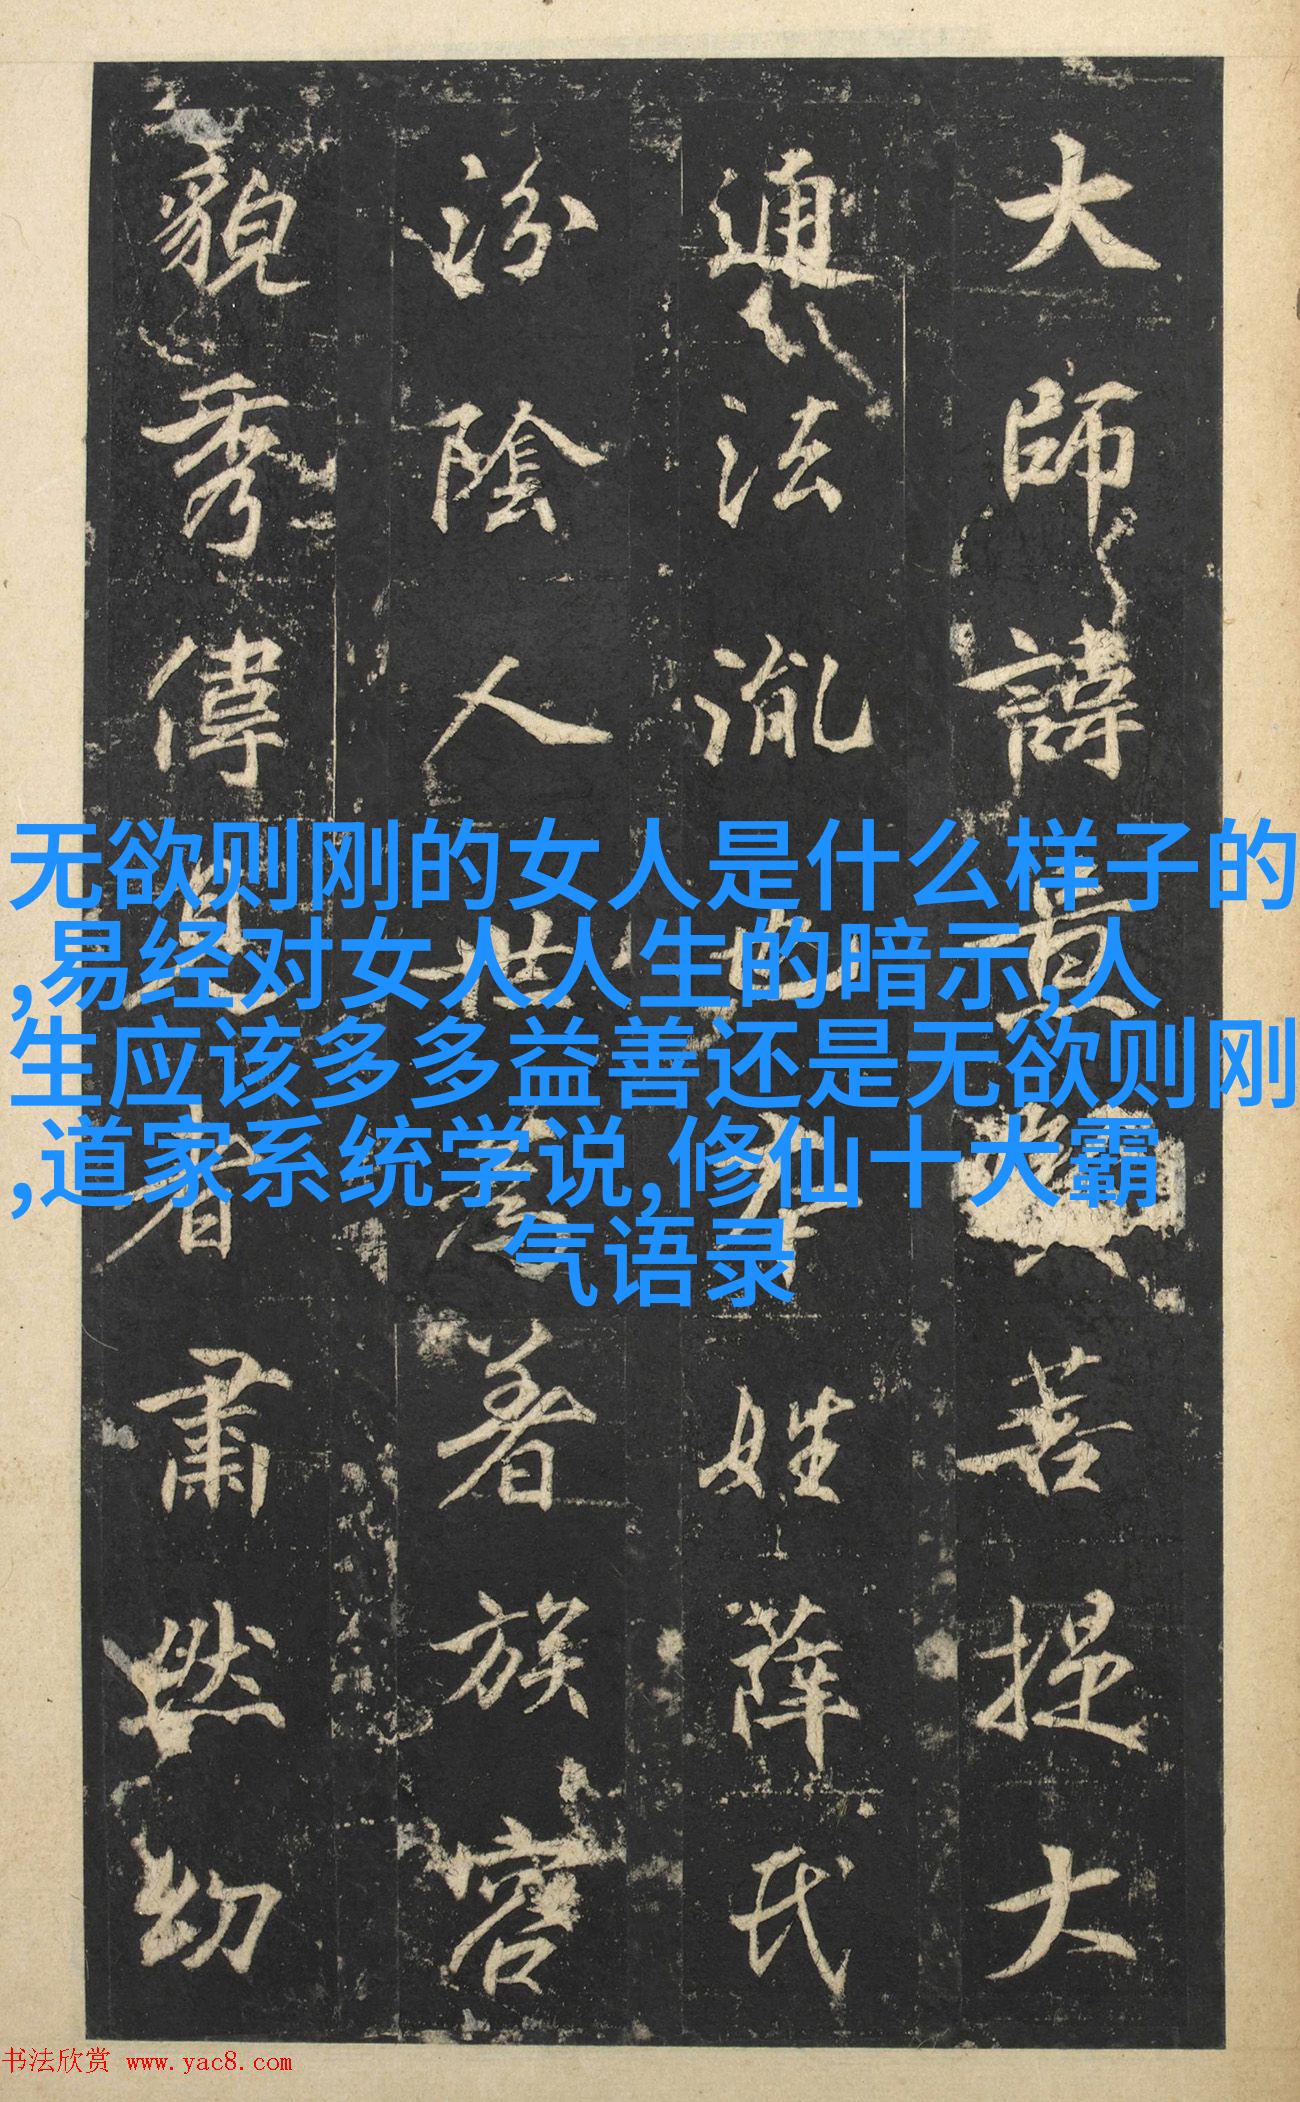 大師諱菩提大
通法也本姓薛氏
汾陰人世為著族容
貌秀偉見者肅然幼
无欲则刚的女人是什么样子的
,易经对女人人生的暗示,人
生应该多多益善还是无欲则刚
,道家系统学说,修仙十大霸
气语录
书法欣赏 www.yac8.com